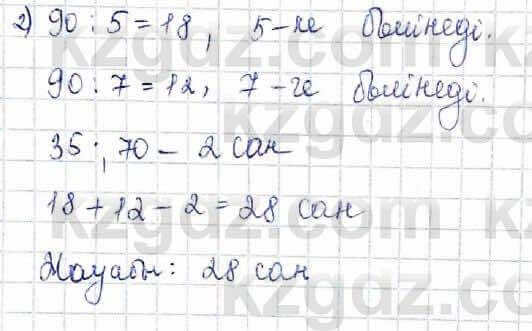 2) 90 : 5 = 18, 5-ке бөлінеді.
90 : 7 = 12, 7-ге бөлінеді.
35 ; 70 - 2 сан
18 + 12 - 2 = 28 сан
Жауабы: 28 сан
kzgdz.com